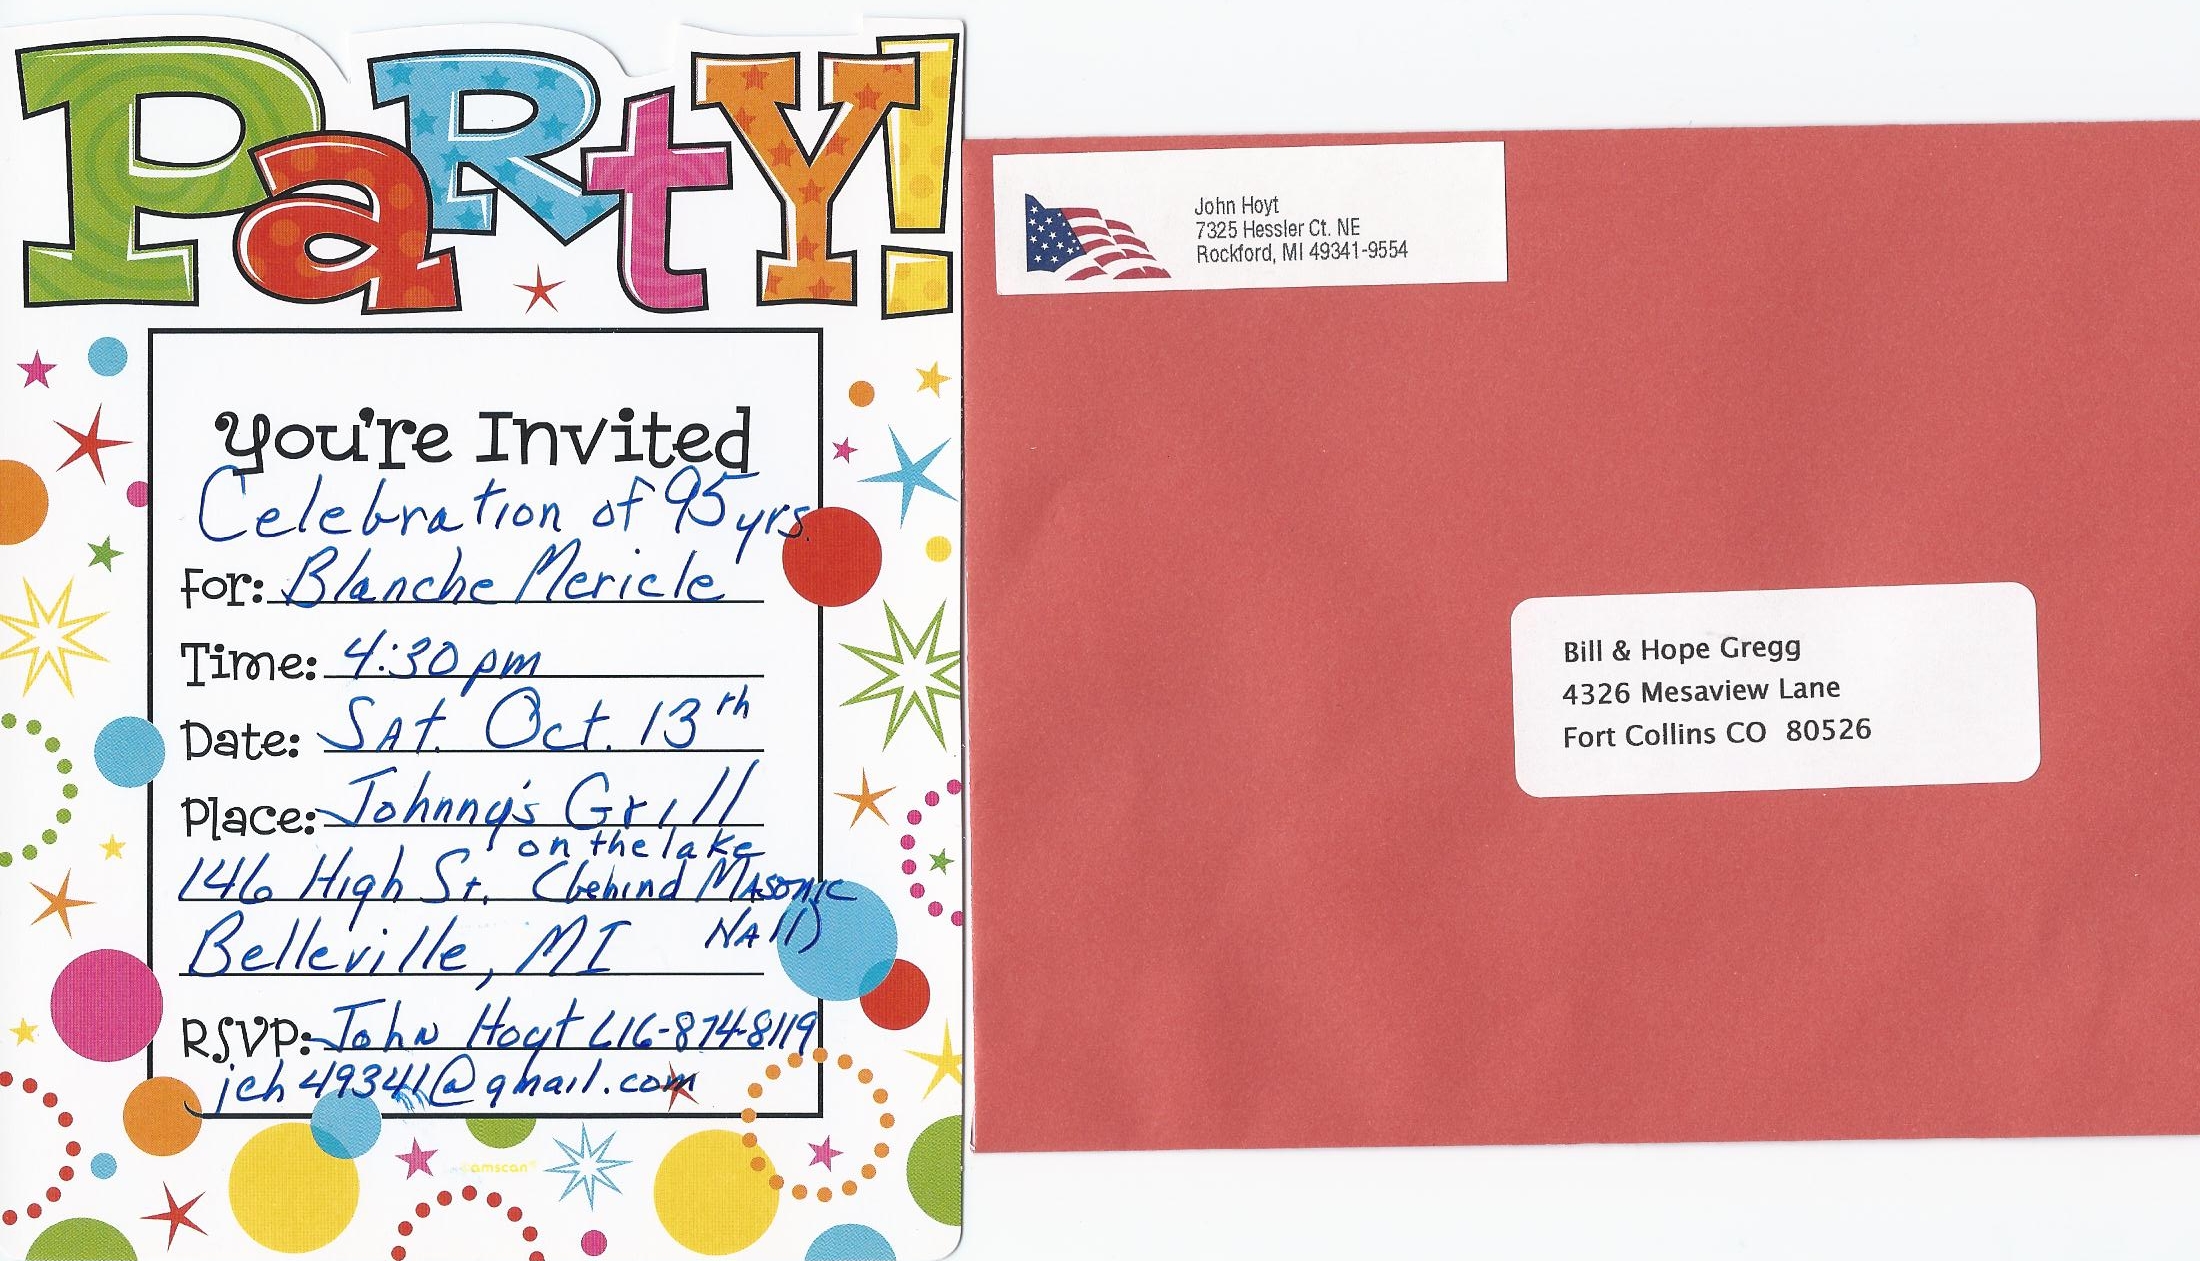 PaRtY!
You're Invited
Celebration of 95 yrs.
For: Blanche Mericle
Time: 4:30 pm
Date: SAT. Oct. 13th
Place: Johnny's Grill
on the lake
146 High St. (behind MASONIC
HAll)
Belleville, MI
RSVP: John Hoyt 616-874-8119
jch49341@gmail.com
amscan
John Hoyt
7325 Hessler Ct. NE
Rockford, MI 49341-9554
Bill & Hope Gregg
4326 Mesaview Lane
Fort Collins CO 80526